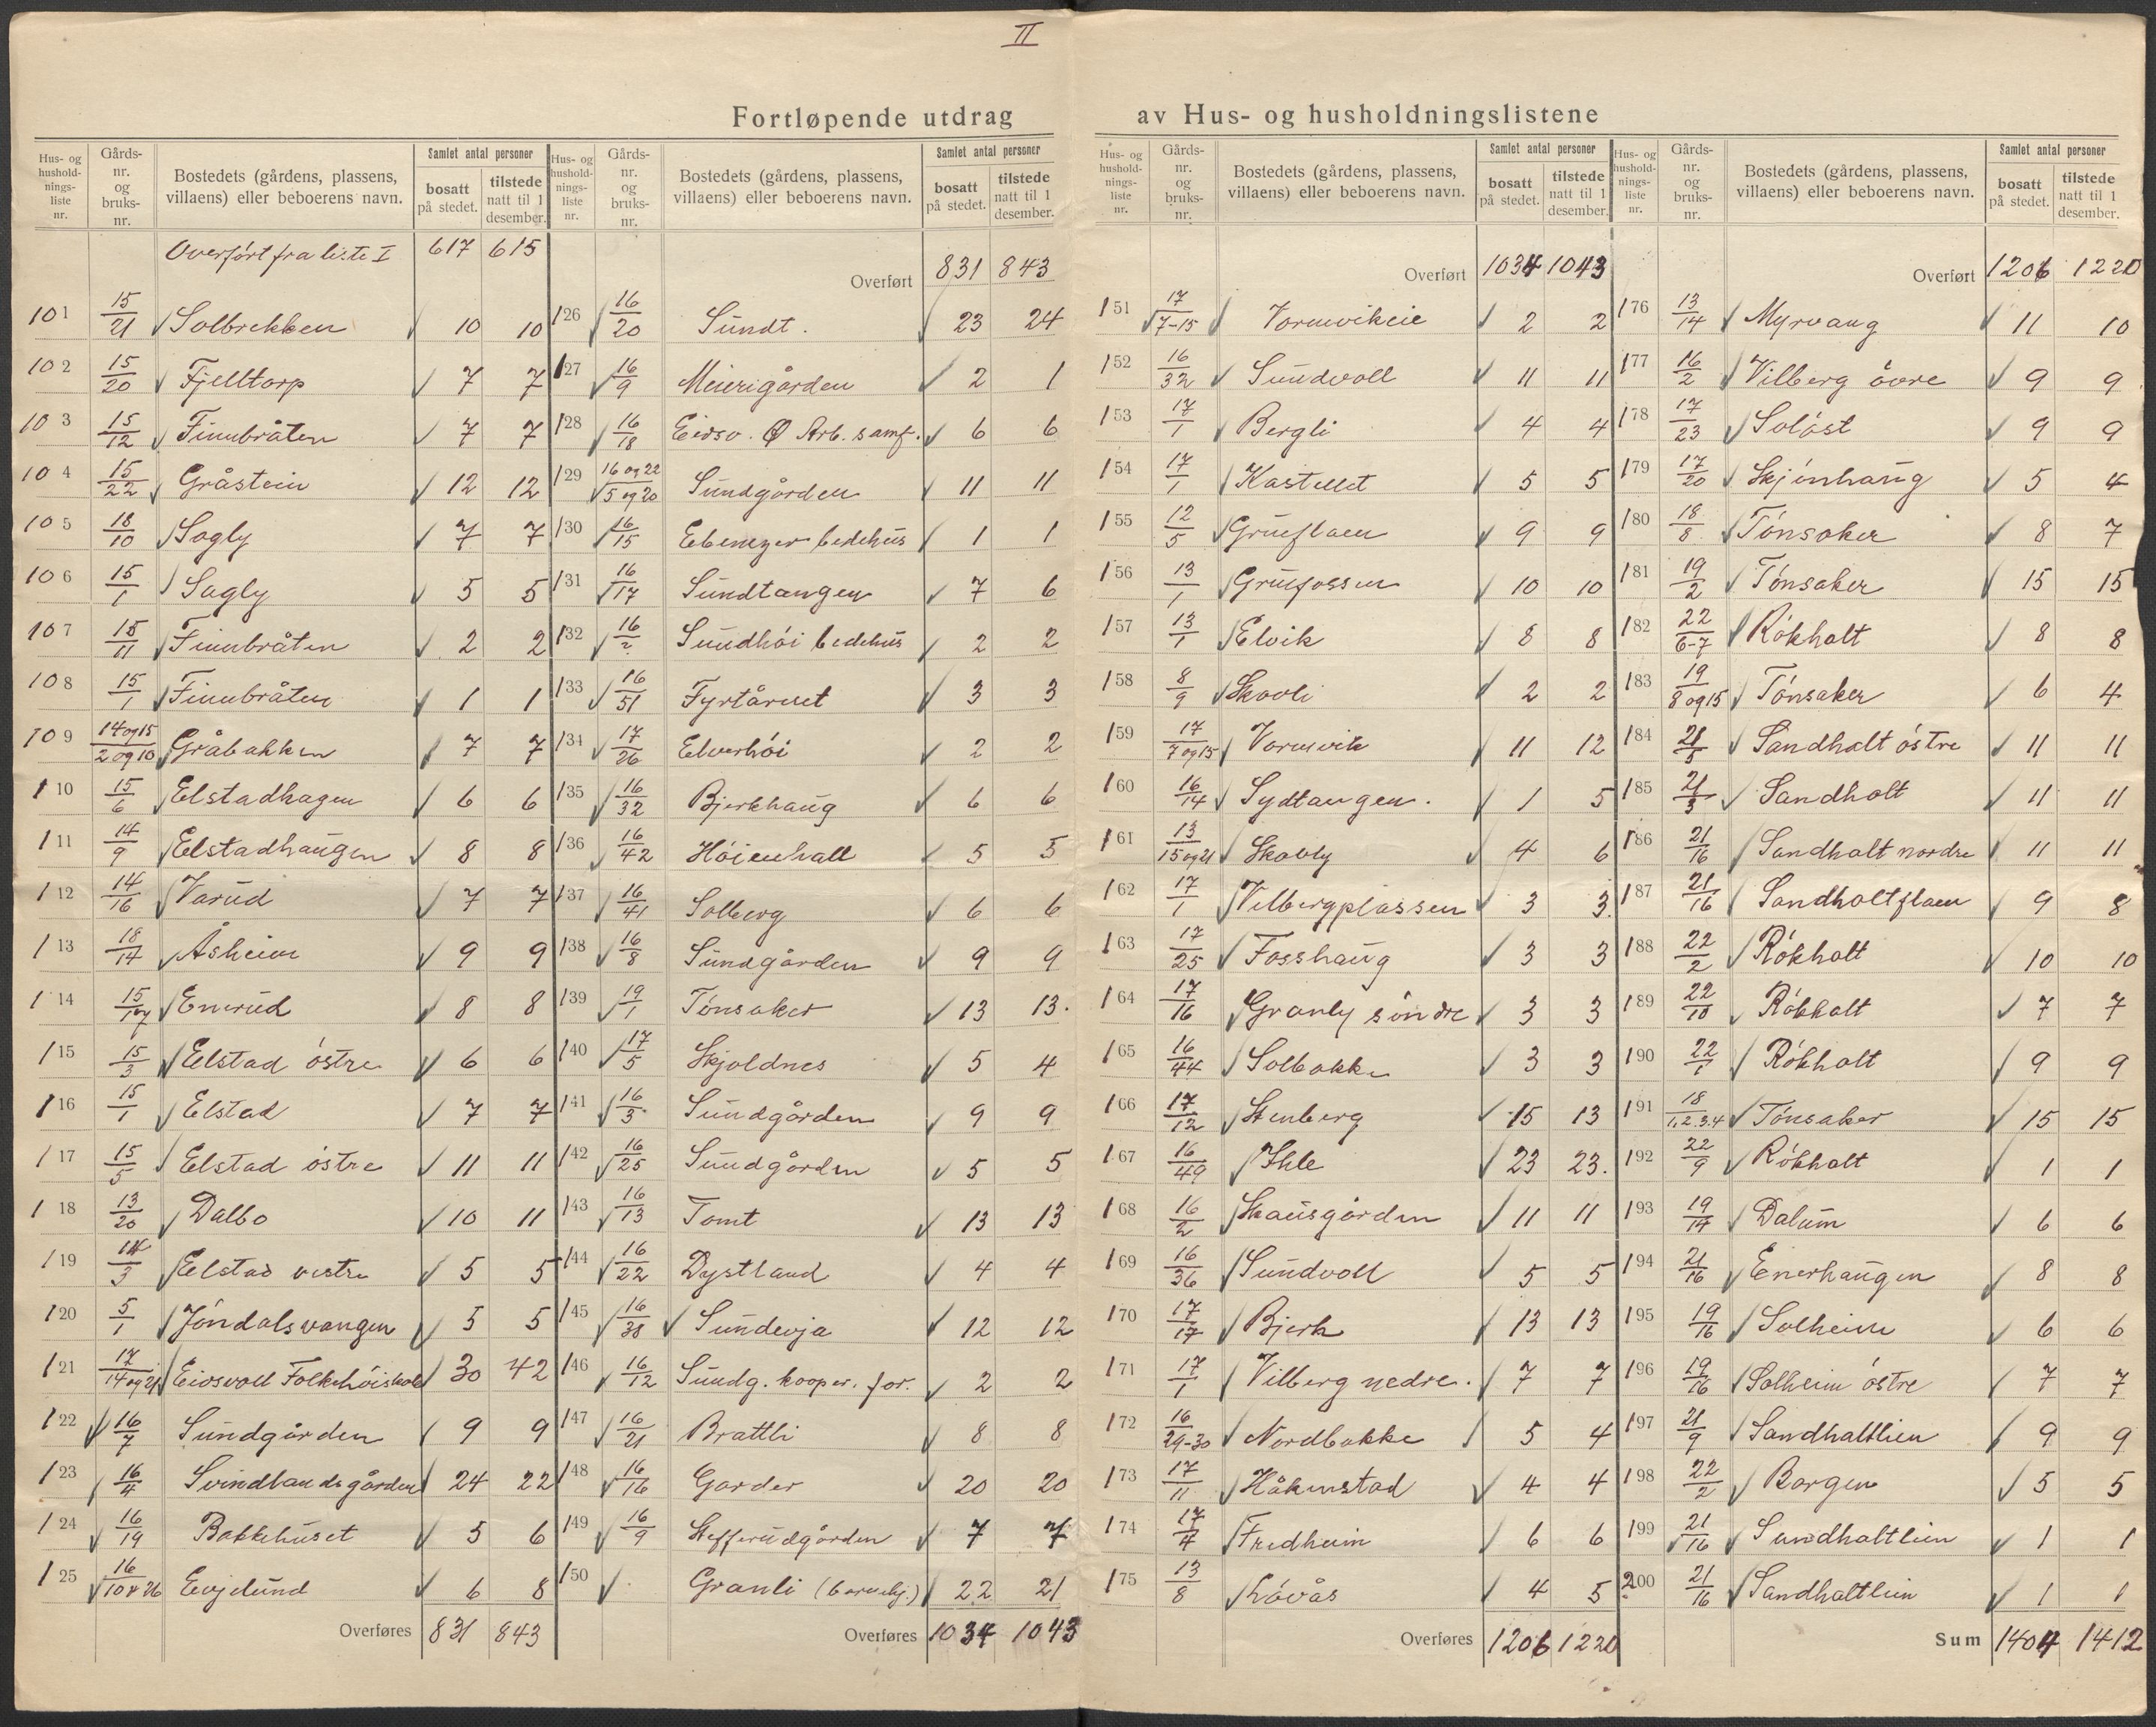 II
Fortløpende utdrag av Hus- og husholdningslistene
Hus- og husholdningsliste nr. | Gårds-nr. og bruks-nr. | Bostedets (gårdens, plassens, villaens) eller beboerens navn. | Samlet antal personer: bosatt på stedet. | tilstede natt til 1 desember.
Overført fra liste I 617 615
101 15/21 Solbrekken 10 10
102 15/20 Fjelltorp 7 7
103 15/12 Finnbråten 7 7
104 15/22 Gråstein 12 12
105 18/10 Sagly 7 7
106 15/1 Sagly 5 5
107 15/11 Finnbråten 2 2
108 15/1 Finnbråten 1 1
109 14 og 15/2 og 10 Gråbakken 7 7
110 15/6 Elstadhagen 6 6
111 14/9 Elstadhaugen 8 8
112 14/16 Varud 7 7
113 18/14 Åsheim 9 9
114 15/1 og 7 Enerud 8 8
115 15/3 Elstad østre 6 6
116 15/1 Elstad 7 7
117 15/5 Elstad østre 11 11
118 13/20 Dalbo 10 11
119 14/3 Elstad vestre 5 5
120 5/1 Jøndalsvangen 5 5
121 17/14 og 21 Eidsvoll Folkehøiskole 30 42
122 16/7 Sundgården 9 9
123 16/4 Svindlandsgården 24 22
124 16/19 Bakkehuset 5 6
125 16/10 & 26 Evjelund 6 8
Overføres 831 843
Hus- og husholdningsliste nr. | Gårds-nr. og bruks-nr. | Bostedets (gårdens, plassens, villaens) eller beboerens navn. | Samlet antal personer: bosatt på stedet. | tilstede natt til 1 desember.
Overført 831 843
126 16/20 Sundt. 23 24
127 16/9 Meierigården 2 1
128 16/18 Eidsv. Ø Arb. samf. 6 6
129 16 og 22/5 og 20 Sundgården 11 11
130 16/15 Ebenezer bedehus 1 1
131 16/17 Sundtangen 7 6
132 16/2 Sundhøi bedehus 2 2
133 16/51 Fyrtårnet 3 3
134 17/26 Elverhøi 2 2
135 16/32 Bjerkhaug 6 6
136 16/42 Høienhall 5 5
137 16/41 Solberg 6 6
138 16/8 Sundgården 9 9
139 19/1 Tønsaker 13 13.
140 17/5 Skjoldnes 5 4
141 16/3 Sundgården 9 9
142 16/25 Sundgården 5 5
143 16/13 Tomt 13 13
144 16/22 Dystland 4 4
145 16/38 Sundevja 12 12
146 16/12 Sundg. kooper. for. 2 2
147 16/21 Brattli 8 8
148 16/16 Garder 20 20
149 16/9 Stefferudgården 7 7
150 Granli (barnehj.) 22 21
Overføres 1034 1043
Hus- og husholdningsliste nr. | Gårds-nr. og bruks-nr. | Bostedets (gårdens, plassens, villaens) eller beboerens navn. | Samlet antal personer: bosatt på stedet. | tilstede natt til 1 desember.
Overført 1034 1043
151 17/7-15 Vormvikeie 2 2
152 16/32 Sundvoll 11 11
153 17/1 Bergli 4 4
154 17/1 Kastellet 5 5
155 12/5 Grueflaen 9 9
156 13/1 Gruefossen 10 10
157 13/1 Elvik 8 8
158 8/9 Skovli 2 2
159 17/7 og 15 Vormvik 11 12
160 16/14 Sydtangen. 1 5
161 13/15 og 21 Skovly 4 6
162 17/1 Vilbergplassen 3 3.
163 17/25 Fosshaug 3 3
164 17/16 Granly söndre 3 3
165 16/44 Solbakke 3 3
166 17/12 Stenberg 15 13
167 16/49 Ihle 23 23.
168 16/2 Skausgården 11 11
169 16/36 Sundvoll 5 5
170 17/17 Bjerk 13 13
171 17/1 Vilberg nedre. 7 7
172 16/29-30 Nordbakke 5 4
173 17/11 Håkenstad 4 4
174 17/4 Fredheim 6 6
175 13/8 Løvås 4 5
Overføres 1206 1220
Hus- og husholdningsliste nr. | Gårds-nr. og bruks-nr. | Bostedets (gårdens, plassens, villaens) eller beboerens navn. | Samlet antal personer: bosatt på stedet. | tilstede natt til 1 desember.
Overført 1206 1220
176 13/14 Myrvang 11 10
177 16/2 Vilberg övre 9 9
178 17/23 Soløst 9 9
179 17/20 Skjønhaug 5 4
180 18/8 Tønsaker 8 7
181 19/2 Tønsaker 15 15
182 22/6-7 Røkholt 8 8
183 19/8 og 15 Tønsaker 6 4
184 21/5 Sandholt østre 11 11
185 21/3 Sandholt 11 11
186 21/16 Sandholt nordre 11 11
187 21/16 Sandholtflaen 9 8
188 22/2 Røkholt 10 10
189 22/10 Røkholt 7 7
190 22/1 Røkholt 9 9
191 18/1,2.3.4 Tønsaker 15 15
192 22/9 Røkholt 1 1
193 19/14 Dalum 6 6
194 21/16 Enerhaugen 8 8
195 19/16 Solheim 6 6
196 19/16 Solheim østre 7 7
197 21/9 Sandholtlien 9 9
198 22/2 Borgen 5 5
199 21/16 Sandholtlien 1 1
200 21/16 Sandholtlien 1 1
Sum 1404 1412